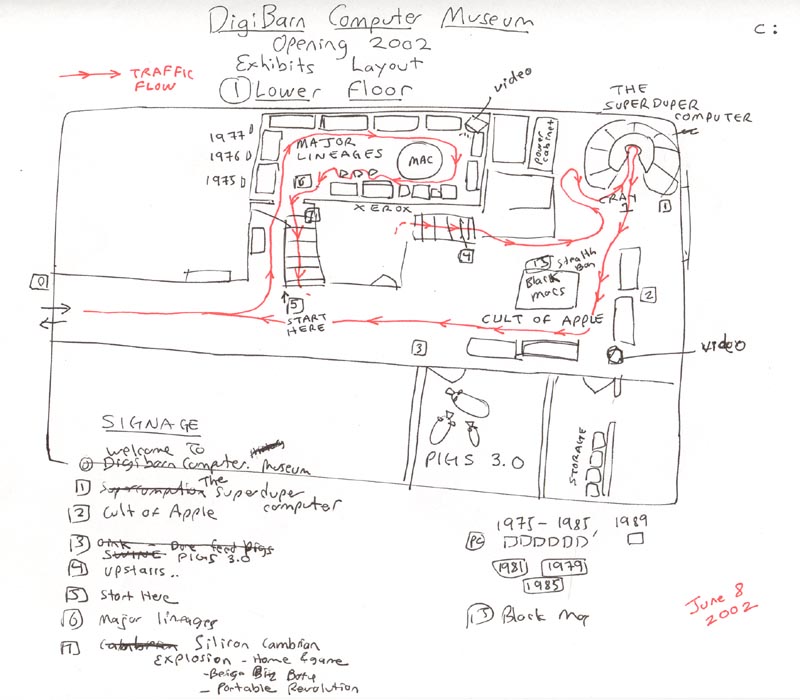 DigiBarn Computer Museum
Opening 2002
Exhibits Layout
① Lower Floor
C:
TRAFFIC
FLOW
video
THE
SUPERDUPER
COMPUTER
1977
1976
1975
MAJOR
LINEAGES
MAC
Power
cabinet
6
XEROX
7
CRAY
1
1
4
0
15 Stealth
Black
macs
2
5
START
HERE
CULT OF APPLE
3
video
PIGS 3.0
STORAGE
SIGNAGE
welcome to
0 Digibarn Computer Museum
1 Supercompution The Superduper
computer
2 Cult of Apple
3 oink - Dove feed Pigs
SWINE PIGS 3.0
4 upstairs..
5 Start Here
6 Major lineages
7 Cambrian Silicon Cambrian
Explosion - Home & game
- Portable Revolution
1975 - 1985, 1989
PC
1981 1979
1985
15 Black
June 8
2002